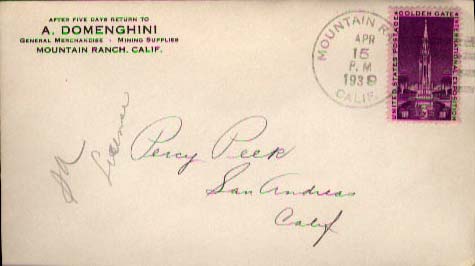 AFTER FIVE DAYS RETURN TO
A. DOMENGHINI
GENERAL MERCHANDISE - MINING SUPPLIES
MOUNTAIN RANCH, CALIF.
MOUNTAIN RA
APR
15
P.M
1939
CALIF.
UNITED STATES POSTAGE
GOLDEN GATE
INTERNATIONAL EXPOSITION
3
Percy Peek
San Andreas
Calif